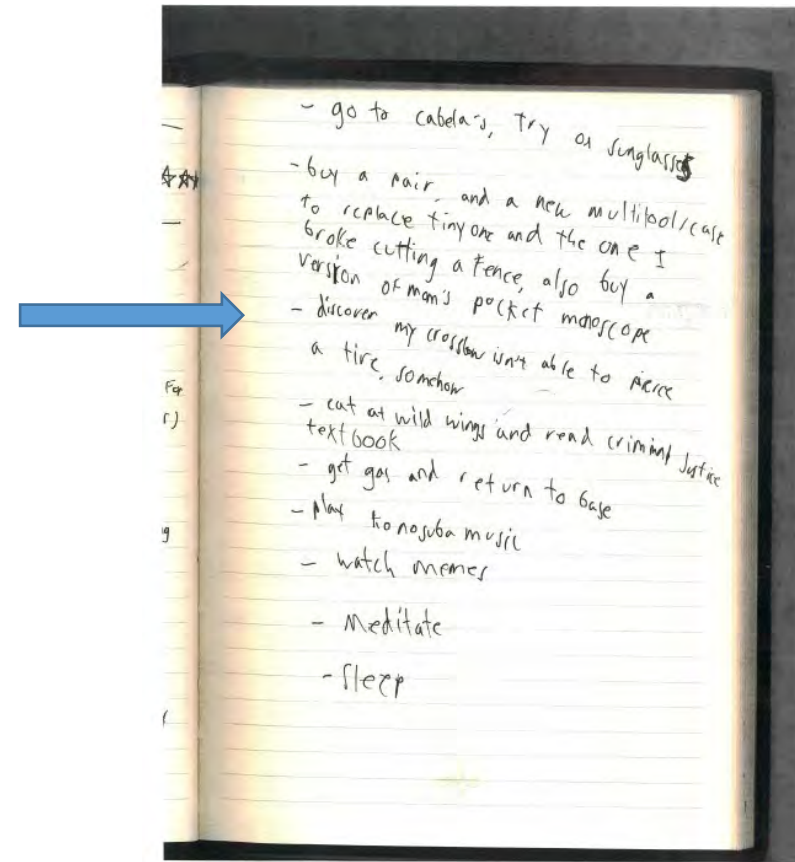 - go to cabela's, Try on sunglasses
- buy a pair, and a new multitool/case
to replace tiny one and the one I
broke cutting a fence, also buy a
version of mom's pocket monoscope
- discover my crossbow isn't able to pierce
a tire, somehow
- eat at wild wings and read criminal Justice
textbook
- get gas and return to base
- play konosuba music
- watch memes
- Meditate
- Sleep
For
r)
g